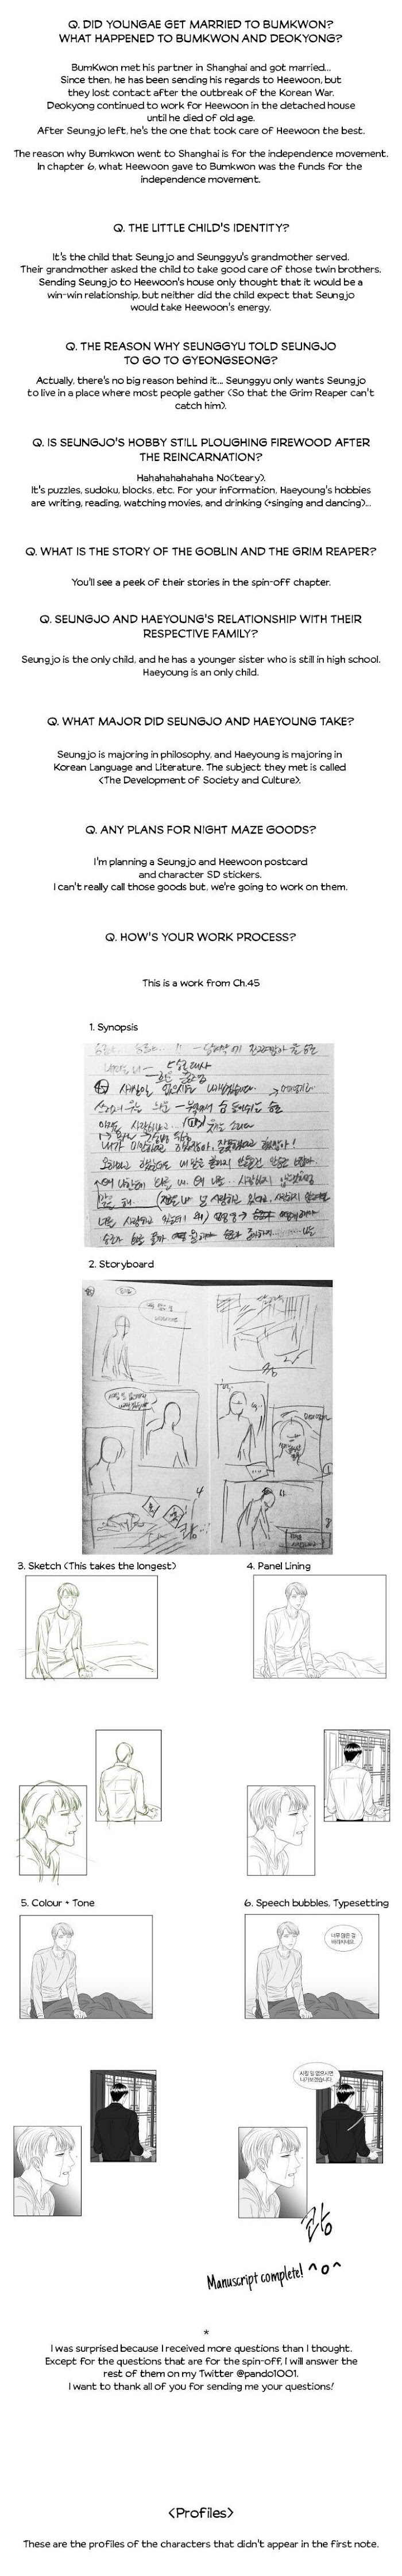 Q. DID YOUNGAE GET MARRIED TO BUMKWON?
WHAT HAPPENED TO BUMKWON AND DEOKYONG?
BumKwon met his partner in Shanghai and got married...
Since then, he has been sending his regards to Heewoon, but
they lost contact after the outbreak of the Korean War.
Deokyong continued to work for Heewoon in the detached house
until he died of old age.
After Seungjo left, he's the one that took care of Heewoon the best.
The reason why Bumkwon went to Shanghai is for the independence movement.
In chapter 6, what Heewoon gave to Bumkwon was the funds for the
independence movement.
Q. THE LITTLE CHILD'S IDENTITY?
It's the child that Seungjo and Seunggyu's grandmother served.
Their grandmother asked the child to take good care of those twin brothers.
Sending Seungjo to Heewoon's house only thought that it would be a
win-win relationship, but neither did the child expect that Seungjo
would take Heewoon's energy.
Q. THE REASON WHY SEUNGGYU TOLD SEUNGJO
TO GO TO GYEONGSEONG?
Actually, there's no big reason behind it... Seunggyu only wants Seungjo
to live in a place where most people gather (So that the Grim Reaper can't
catch him).
Q. IS SEUNGJO'S HOBBY STILL PLOUGHING FIREWOOD AFTER
THE REINCARNATION?
Hahahahahahaha No(teary).
It's puzzles, sudoku, blocks, etc. For your information, Haeyoung's hobbies
are writing, reading, watching movies, and drinking (+singing and dancing)...
Q. WHAT IS THE STORY OF THE GOBLIN AND THE GRIM REAPER?
You'll see a peek of their stories in the spin-off chapter.
Q. SEUNGJO AND HAEYOUNG'S RELATIONSHIP WITH THEIR
RESPECTIVE FAMILY?
Seungjo is the only child, and he has a younger sister who is still in high school.
Haeyoung is an only child.
Q. WHAT MAJOR DID SEUNGJO AND HAEYOUNG TAKE?
Seungjo is majoring in philosophy, and Haeyoung is majoring in
Korean Language and Literature. The subject they met is called
<The Development of Society and Culture>.
Q. ANY PLANS FOR NIGHT MAZE GOODS?
I'm planning a Seungjo and Heewoon postcard
and character SD stickers.
I can't really call those goods but, we're going to work on them.
Q. HOW'S YOUR WORK PROCESS?
This is a work from Ch.45
1. Synopsis
2. Storyboard
3. Sketch (This takes the longest)
4. Panel Lining
5. Colour + Tone
6. Speech bubbles, Typesetting
너무 많은 걸
바라시네요.
시킬 일 없으시면
나가보겠습니다.
Manuscript complete! ^o^
*
I was surprised because I received more questions than I thought.
Except for the questions that are for the spin-off, I will answer the
rest of them on my Twitter @pando1001.
I want to thank all of you for sending me your questions!
<Profiles>
These are the profiles of the characters that didn't appear in the first note.